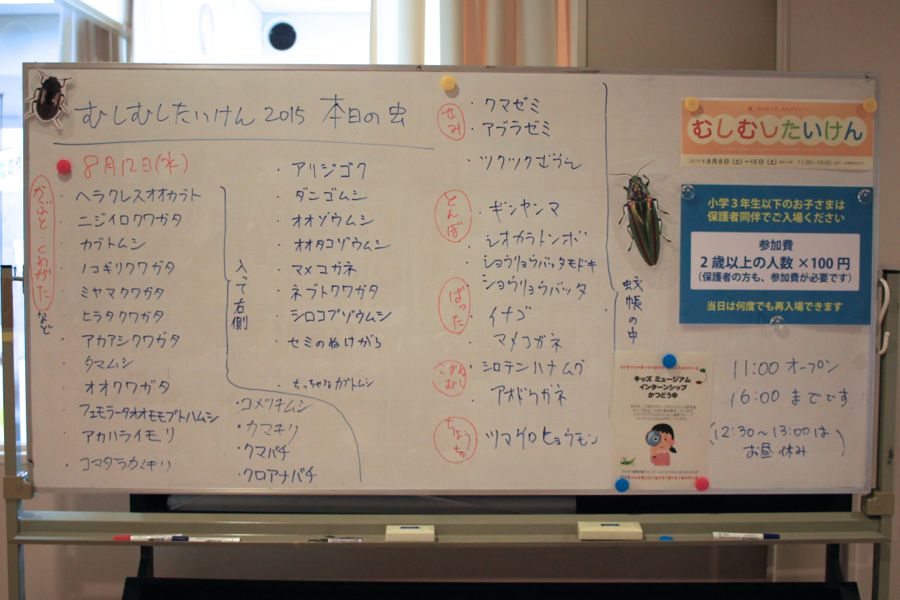 むしむしたいけん 2015 本日の虫
8月12日(水)
かぶと・くわがた など
ヘラクレスオオカブト
ニジイロクワガタ
カブトムシ
ノコギリクワガタ
ミヤマクワガタ
ヒラタクワガタ
アカアシクワガタ
タマムシ
オオクワガタ
フェモラータオオモモブトハムシ
アカハライモリ
・ゴマダラカミキリ
入って右側
・アリジゴク
・ダンゴムシ
・オオゾウムシ
・オオタコゾウムシ
・マメコガネ
・ネブトクワガタ
・シロコブゾウムシ
・セミのぬけがら
・ちっちゃなカブトムシ
・コメツキムシ
・カマキリ
・クマバチ
・クロアナバチ
せみ
・クマゼミ
・アブラゼミ
・ツクツクぼうし
とんぼ
・ギンヤンマ
・シオカラトンボ
・ショウリョウバッタモドキ
ばった
・ショウリョウバッタ
・イナゴ
・マメコガネ
こがねむし
・シロテンハナムグリ
・アオドウガネ
ちょうちょ
ツマグロヒョウモン
蚊帳の中
むしむしたいけん
2015年8月8日(土)〜15日(土)
11:00〜16:00
小学3年生以下のお子さまは
保護者同伴でご入場ください
参加費
2歳以上の人数×100円
(保護者の方も、参加費が必要です)
当日は何度でも再入場できます
キッズ ミュージアム
インターンシップ
かつどう中
11:00 オープン
16:00 までです
(12:30〜13:00は
お昼休み)